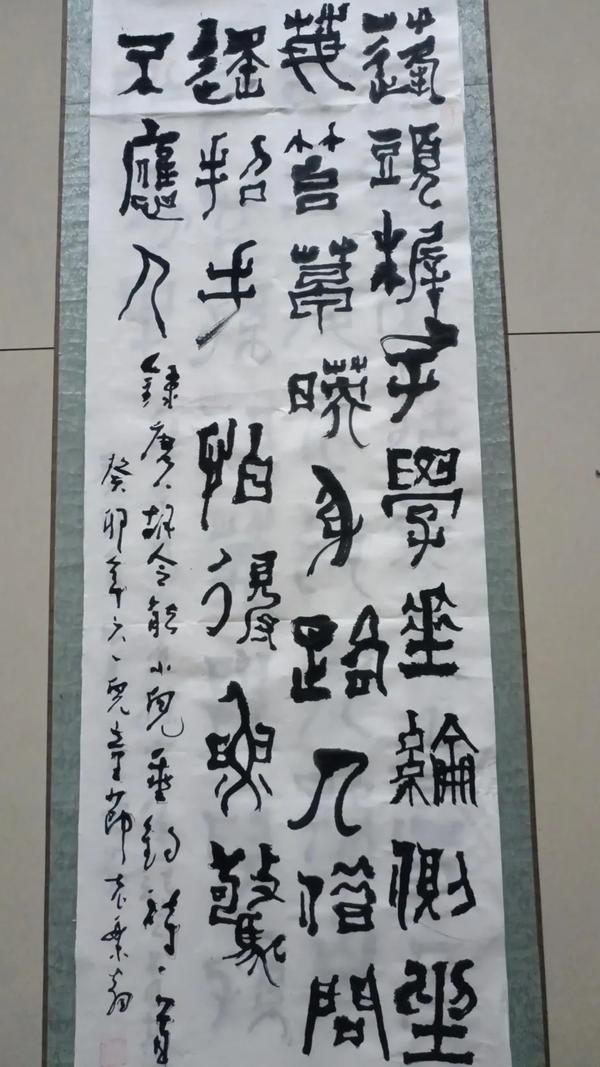 蓬頭稺子學垂綸側坐
莓苔草映身路人借問
遙招手怕得魚驚
不應人 錄唐胡令能小兒垂釣詩一首
癸卯年六一兒童節